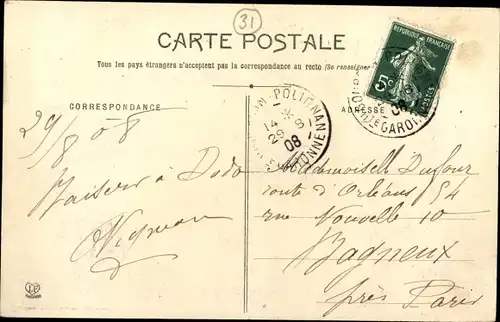 31
CARTE POSTALE
Tous les pays étrangers n'acceptent pas la correspondance au recto (Se renseigner
RÉPUBLIQUE FRANÇAISE
5c
POSTES
CORRESPONDANCE
ADRESSE
POLIGNAN
14
29 8
08
GARONNE
08
GARONNE
29/8 08
Baisers à Dodo
Mademoiselle Dufour
route d'Orléans 54
rue Nouvelle 10
Bagneux
près Paris